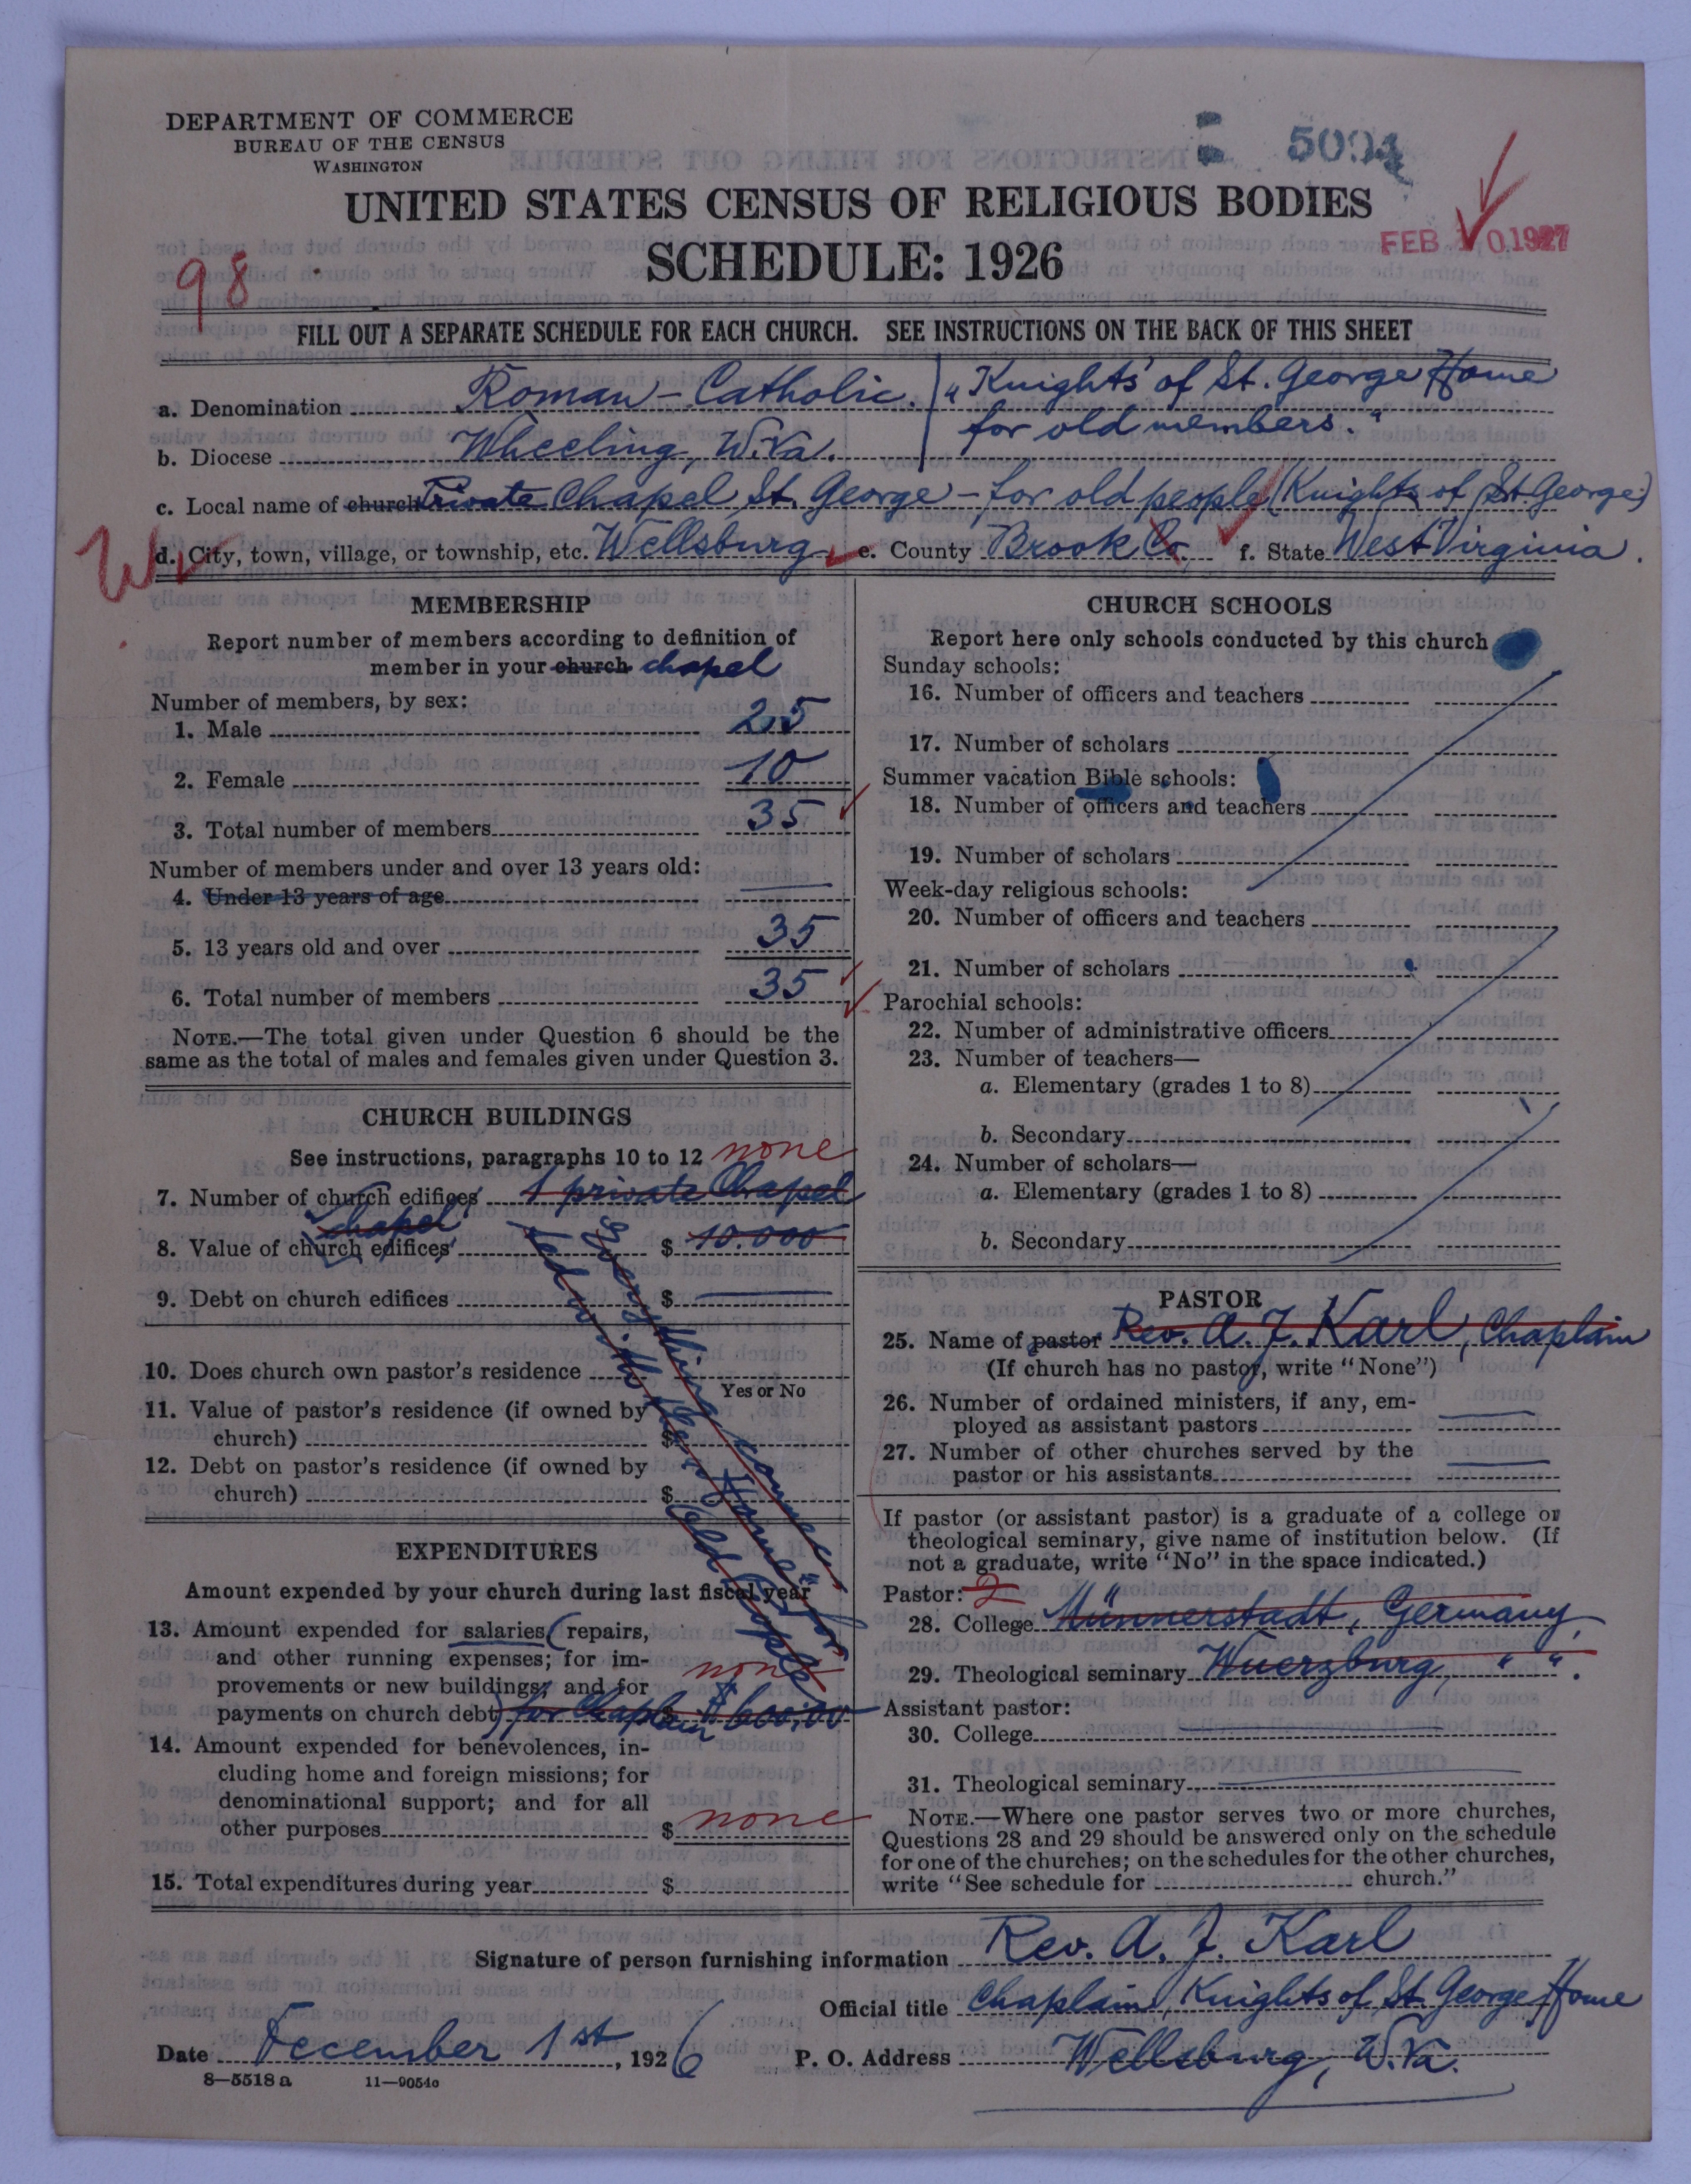 DEPARTMENT OF COMMERCE
BUREAU OF THE CENSUS
WASHINGTON
5094
UNITED STATES CENSUS OF RELIGIOUS BODIES
SCHEDULE: 1926
FEB 10 1927
98
FILL OUT A SEPARATE SCHEDULE FOR EACH CHURCH. SEE INSTRUCTIONS ON THE BACK OF THIS SHEET
a. Denomination Roman-Catholic. "Knights' of St. George Home
b. Diocese Wheeling, W.Va. for old members."
c. Local name of church Private Chapel St. George - for old people (Knights of St. George)
d. City, town, village, or township, etc. Wellsburg e. County Brook Co f. State West Virginia.
MEMBERSHIP
Report number of members according to definition of
member in your church chapel
Number of members, by sex:
1. Male 25
2. Female 10
3. Total number of members 35
Number of members under and over 13 years old:
4. Under 13 years of age
5. 13 years old and over 35
6. Total number of members 35
NOTE.—The total given under Question 6 should be the
same as the total of males and females given under Question 3.
CHURCH BUILDINGS
See instructions, paragraphs 10 to 12 none
7. Number of church edifices 1 private Chapel
Chapel
8. Value of church edifices $ 10.000
9. Debt on church edifices $
10. Does church own pastor's residence
Yes or No
11. Value of pastor's residence (if owned by
church) $
12. Debt on pastor's residence (if owned by
church) $
Everything connec-
ted with the "Home" for
old people
EXPENDITURES
Amount expended by your church during last fiscal year
13. Amount expended for salaries, (repairs,
and other running expenses; for im-
provements or new buildings; and for none
payments on church debt) for Chaplain $ 600,00
14. Amount expended for benevolences, in-
cluding home and foreign missions; for
denominational support; and for all
other purposes $ none
15. Total expenditures during year $
CHURCH SCHOOLS
Report here only schools conducted by this church
Sunday schools:
16. Number of officers and teachers
17. Number of scholars
Summer vacation Bible schools:
18. Number of officers and teachers
19. Number of scholars
Week-day religious schools:
20. Number of officers and teachers
21. Number of scholars
Parochial schools:
22. Number of administrative officers
23. Number of teachers—
a. Elementary (grades 1 to 8)
b. Secondary
24. Number of scholars—
a. Elementary (grades 1 to 8)
b. Secondary
PASTOR
25. Name of pastor Rev. A. J. Karl, Chaplain
(If church has no pastor, write "None")
26. Number of ordained ministers, if any, em-
ployed as assistant pastors
27. Number of other churches served by the
pastor or his assistants
If pastor (or assistant pastor) is a graduate of a college or
theological seminary, give name of institution below. (If
not a graduate, write "No" in the space indicated.)
Pastor: 2
28. College Münnerstadt, Germany,
29. Theological seminary Wuerzburg, " ".
Assistant pastor:
30. College
31. Theological seminary
NOTE.—Where one pastor serves two or more churches,
Questions 28 and 29 should be answered only on the schedule
for one of the churches; on the schedules for the other churches,
write "See schedule for church."
Signature of person furnishing information Rev. A. J. Karl
Official title Chaplain, Knights of St. George Home
Date December 1st, 1926 P. O. Address Wellsburg, W.Va.
8—5518a 11—9054c